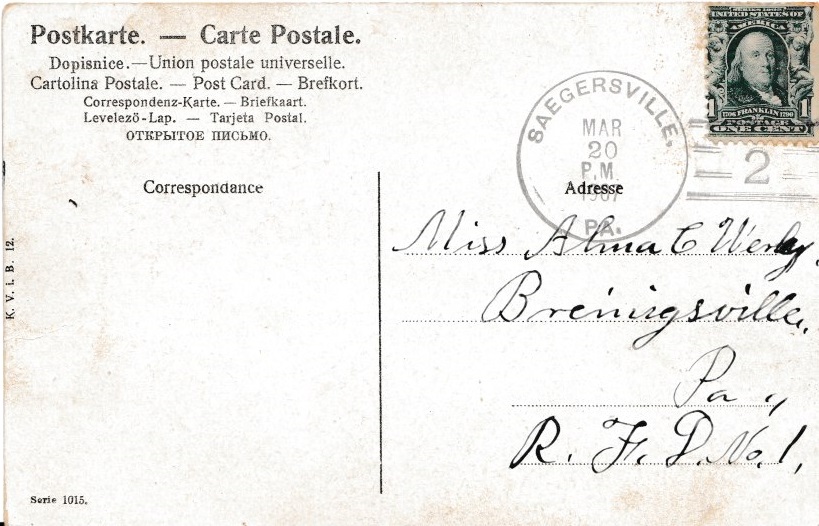 Postkarte. — Carte Postale.
Dopisnice.—Union postale universelle.
Cartolina Postale. — Post Card. — Brefkort.
Correspondenz-Karte. — Briefkaart.
Levelező-Lap. — Tarjeta Postal.
ОТКРЫТОЕ ПИСЬМО.
SERIES 1902
UNITED STATES OF
AMERICA
1 1
1706 FRANKLIN 1790
POSTAGE
ONE CENT
SAEGERSVILLE,
MAR
20
P.M.
1907
PA.
2
Correspondance
Adresse
Miss Alma C Werley
Breinigsville,
Pa.,
R. F. D. No. 1,
K. V. i. B. 12.
Serie 1015.